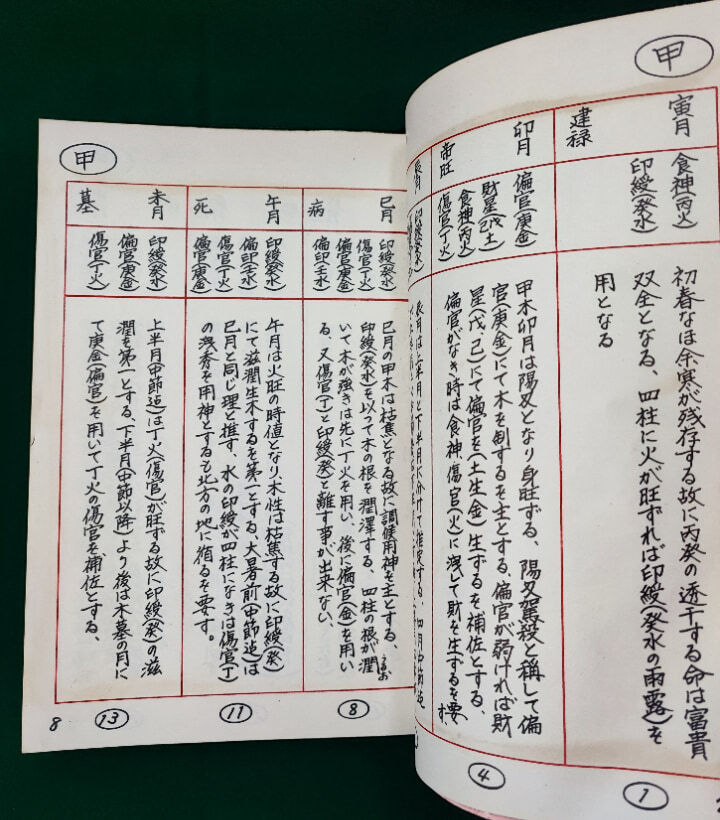 甲
寅月
建禄
食神(丙火)
印綬(癸水)
初春なほ余寒が残存する故に丙癸の透干する命は富貴
双全となる、四柱に火が旺ずれば印綬(癸水の雨露)を
用となる
1
卯月
帝旺
偏官(庚金)
財星(戊己土)
食神(丙火)
傷官(丁火)
甲木卯月は陽刄となり身旺ずる、陽刄駕殺と称して偏
官(庚金)にて木を制するを主とする、偏官が弱ければ財
星(戊、己)にて偏官を(土生金)生ずるを補佐とする、
偏官がなき時は食神、傷官(火)に洩して財を生ずるを要
す、
4
甲
巳月
病
印綬(癸水)
傷官(丁火)
偏官(庚金)
偏印(壬水)
巳月の甲木は枯焦となる故に調候用神を主とする、
印綬(癸水)を以って木の根を潤澤する、四柱の根が潤
いて木が強きは先に丁火を用い、後に偏官(金)を用い
る、又傷官(丁)と印綬(癸)と離す事が出来ない、
8
午月
死
印綬(癸水)
偏印(壬水)
傷官(丁火)
偏官(庚金)
午月は火旺の時値となり、木性は枯焦する故に印綬(癸)
にて滋潤生木するを第一とする、大暑前(中節迄)は
巳月と同じ理と推す、水の印綬が四柱になきは傷官(丁)
の洩秀を用神とするも北方の地に循るを要す。
11
未月
墓
印綬(癸水)
偏官(庚金)
傷官(丁火)
上半月(中節迄)は丁火(傷官)が旺ずる故に印綬(癸)の滋
潤を第一とする、下半月(中節以降)より後は木墓の月に
て庚金(偏官)を用いて丁火の傷官を補佐とする、
13
8